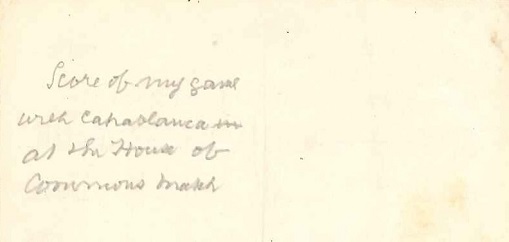 Score of my game
with Capablanca in
at the House of
Commons match